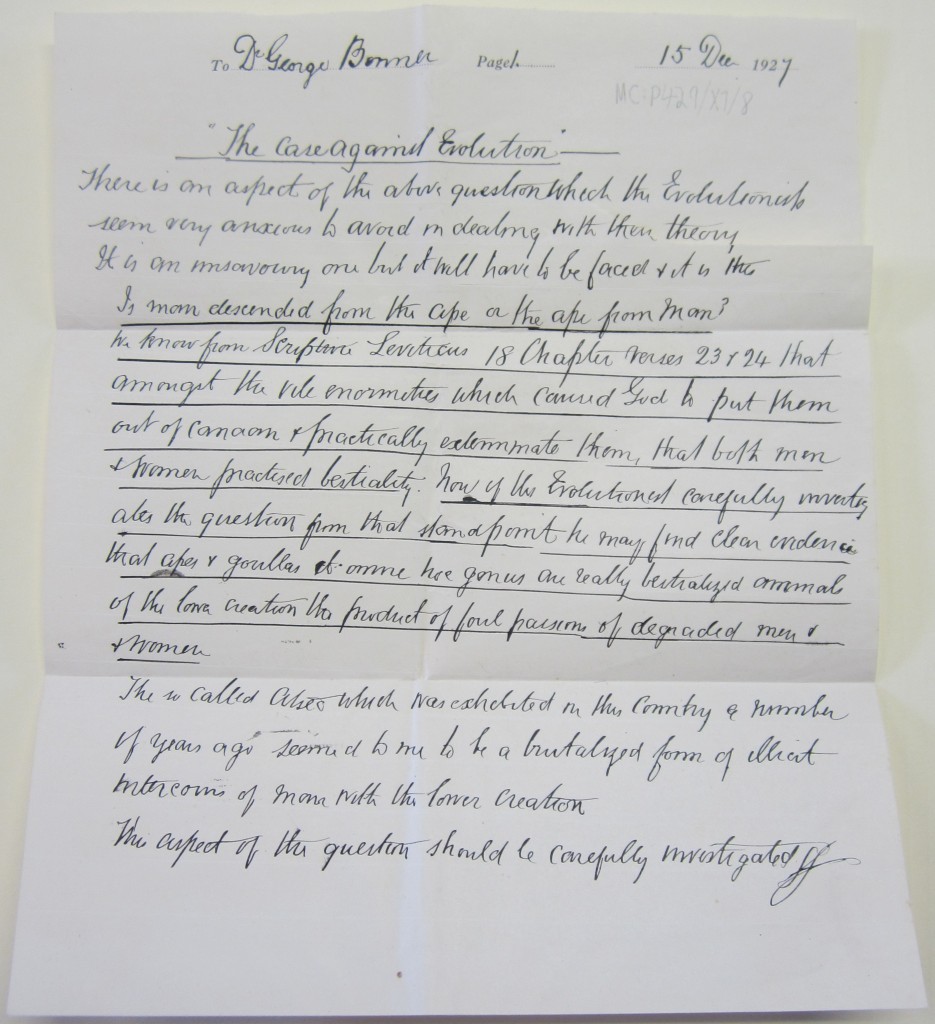 To Dr George Bonner Page 1. 15 Dec 1927
MC:P429/X7/8
"The Case Against Evolution"
There is an aspect of the above question which the Evolutionists
seem very anxious to avoid in dealing with their theory
It is an unsavoury one but it will have to be faced & it is this
Is man descended from the ape or the ape from Man?
We know from Scripture Leviticus 18 Chapter verses 23 & 24 that
amongst the vile enormities which caused God to put them
out of Canaan & practically exterminate them, that both men
& women practised bestiality. Now if the Evolutionist carefully investig
ates the question from that standpoint he may find clear evidence
that apes & gorillas et omne hoc genus are really bestialized animals
of the lower creation the product of foul passions of degraded men &
& women
The so called which was exhibited in this Country a number
of years ago seemed to me to be a brutalized form of illicit
intercourse of man with the lower creation
This aspect of the question should be carefully investigated